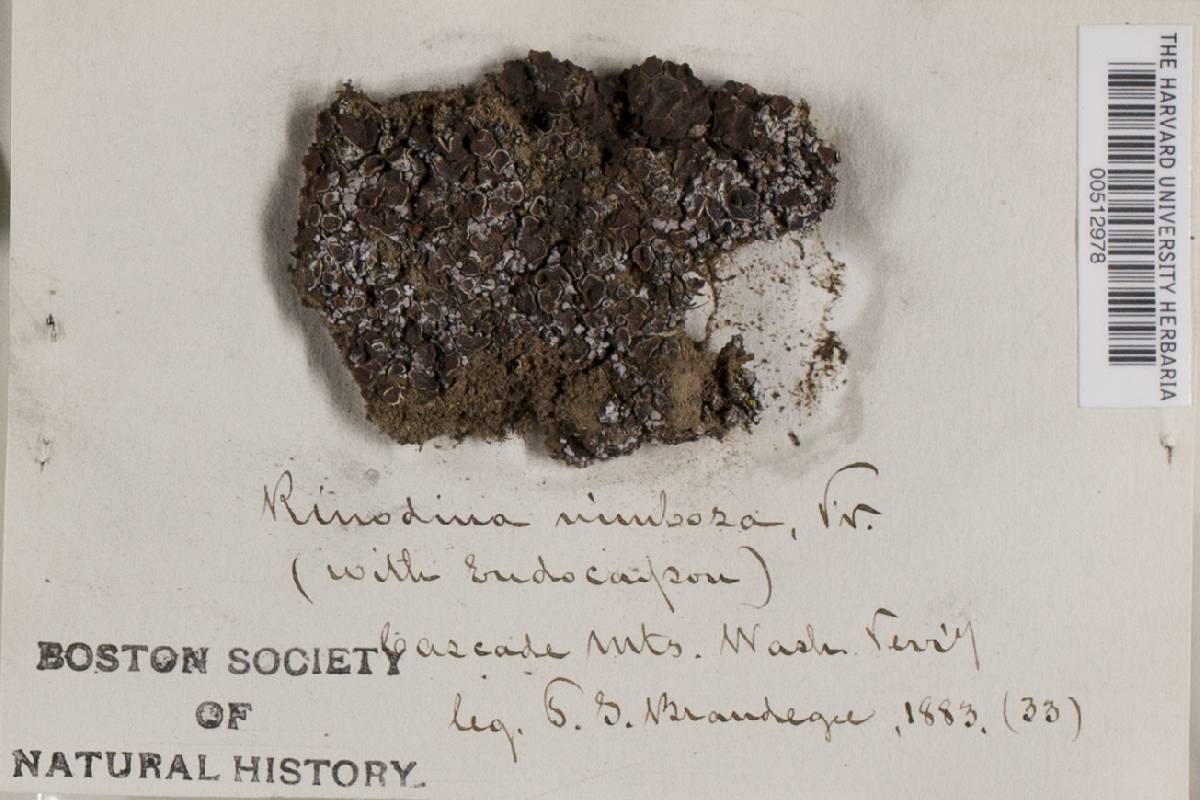 THE HARVARD UNIVERSITY HERBARIA
00512978
Rinodina nimbosa, Fr.
(with Endocarpon)
Cascade Mts. Wash. Terr'y
leg. T. S. Brandegee, 1883. (33)
BOSTON SOCIETY
OF
NATURAL HISTORY.